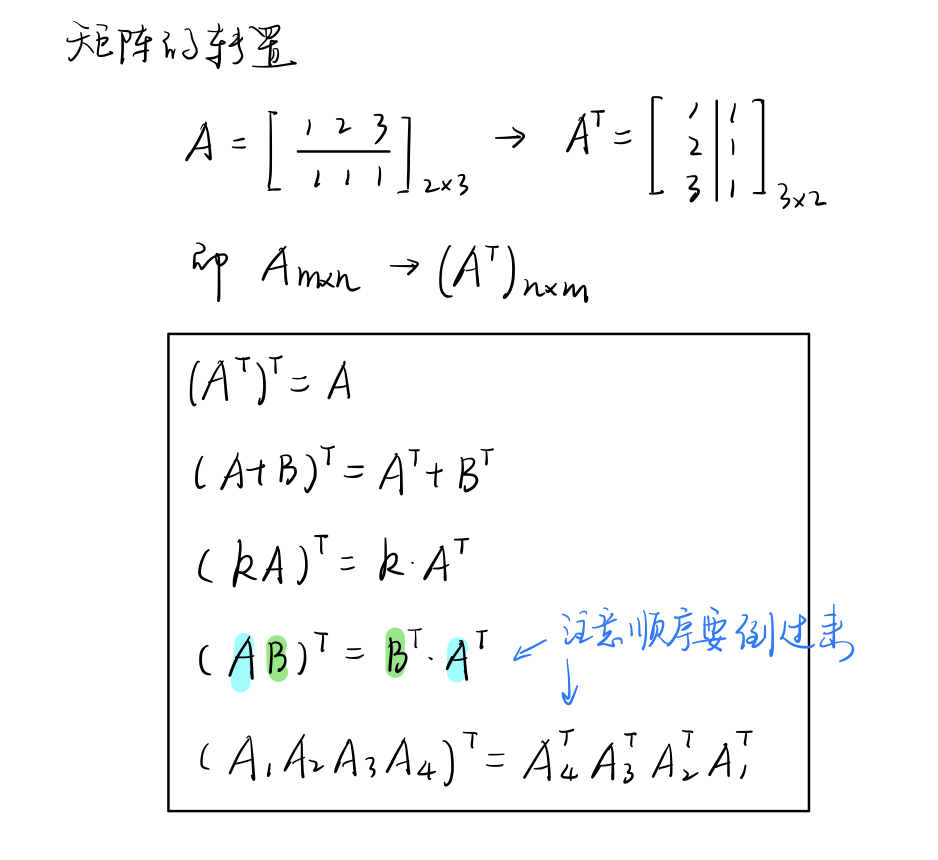 矩阵的转置
A = [ 1 2 3 / 1 1 1 ]₂ₓ₃ → Aᵀ = [ 1 2 3 | 1 1 1 ]₃ₓ₂
即 Aₘₓₙ → (Aᵀ)ₙₓₘ
(Aᵀ)ᵀ = A
(A+B)ᵀ = Aᵀ + Bᵀ
(kA)ᵀ = k·Aᵀ
(AB)ᵀ = Bᵀ·Aᵀ ← 注意顺序要倒过来
↓
(A₁A₂A₃A₄)ᵀ = A₄ᵀ A₃ᵀ A₂ᵀ A₁ᵀ